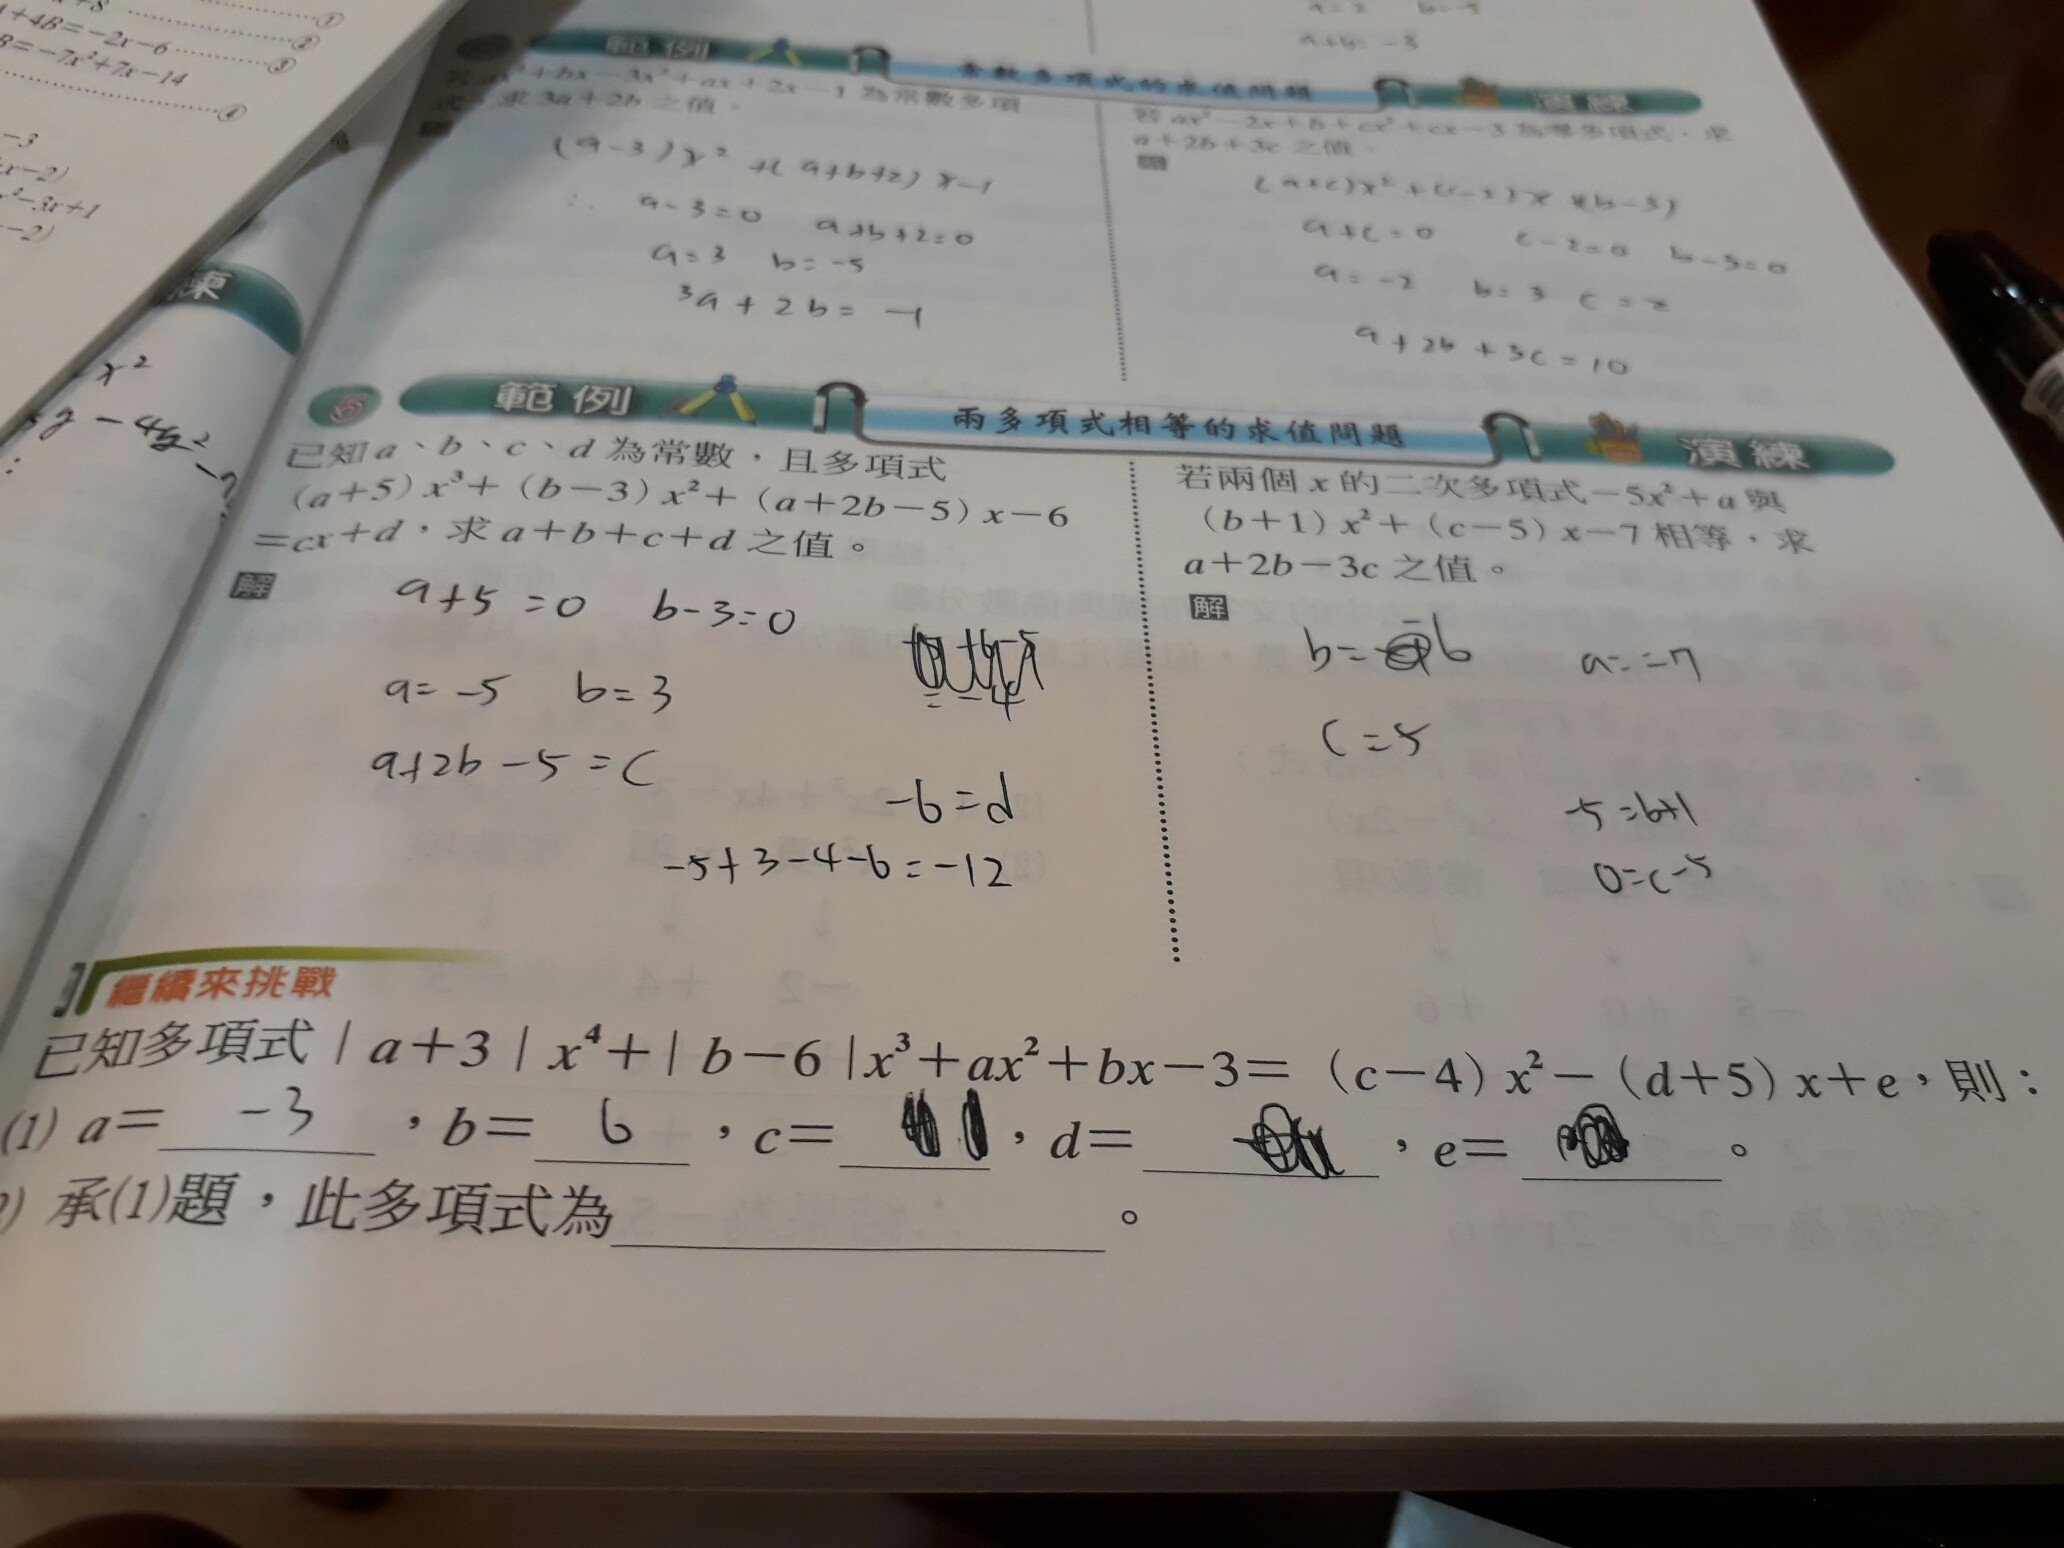 +4B=-2x-6 ②
B=-7x²+7x-14 ③
④
-3
x-2)
x²-3x+1
-2)
練
x²
y - 4
a+b= -3
範例 常數多項式的求值問題 演練
ax²+bx-3x²+ax+2x-1 為常數多項
式，求 3a+2b 之值。
(a-3)x² +(a+b+2) x-1
∴ a-3=0 a+b+2=0
a=3 b=-5
3a+2b= -1
若 ax²-2x+b+cx²+cx-3 為零多項式，求
a+2b+3c 之值。
(a+c)x²+(c-2)x+(b-3)
a+c=0 c-2=0 b-3=0
a=-2 b=3 c=2
a+2b+3c=10
範例 兩多項式相等的求值問題 演練
已知 a、b、c、d 為常數，且多項式
(a+5) x³+ (b-3) x²+ (a+2b-5) x-6
=cx+d，求 a+b+c+d 之值。
解
a+5=0 b-3=0
a=-5 b=3
=-4
a+2b-5=c
-6=d
-5+3-4-6=-12
若兩個 x 的二次多項式-5x²+a 與
(b+1) x²+ (c-5) x-7 相等，求
a+2b-3c 之值。
解
b=-6 a=-7
c=5
-5=b+1
0=c-5
繼續來挑戰
已知多項式 | a+3 | x⁴+ | b-6 | x³+ax²+bx-3= (c-4) x²- (d+5) x+e，則：
(1) a= -3 ，b= 6 ，c= ，d= ，e= 。
) 承(1)題，此多項式為 。